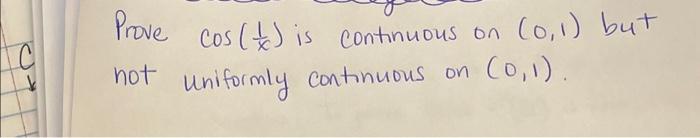 Prove cos(1/x) is continuous on (0,1) but
not uniformly continuous on (0,1).